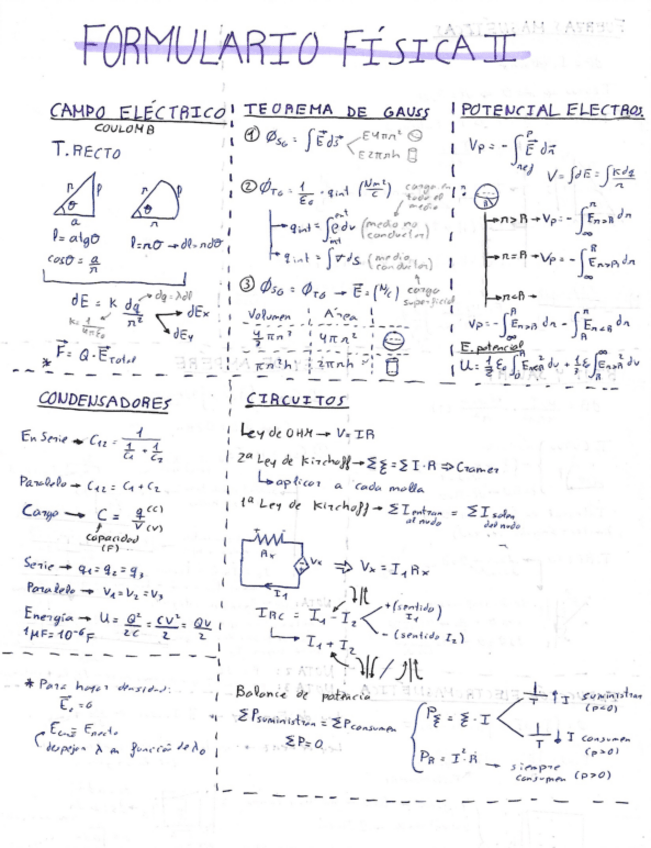 FORMULARIO FÍSICA II
CAMPO ELÉCTRICO
COULOMB
T. RECTO
r
p
θ
a
r
p
θ
l = a tgθ
l = rθ → dl = rdθ
cosθ = a/r
dE = K dq/r²
dq = λdl
K = 1/4πε₀
dEx
dEy
* F⃗ = Q · E⃗Total
TEOREMA DE GAUSS
① Ø_SG = ∫E⃗ds⃗
E4πr²
E2πrh
② Ø_TG = 1/ε₀ · qint (Nm²/C)
carga en todo el medio
qint = ∫ρdv (medio no conductor)
qint = ∫σds (medio conductor)
carga superficial
③ Ø_SG = Ø_TG → E⃗ = (N/C)
Volumen Área
4/3 πr³ 4πr²
πr²h 2πrh
POTENCIAL ELECTROS.
Vp = - ∫ref^P E⃗ dr⃗
V = ∫dE = ∫Kdq/r
R
r>R → Vp = - ∫∞^r E r>R dr
r=R → Vp = - ∫∞^R E r>R dr
r<R →
Vp = - ∫∞^R E r>R dr - ∫R^r E r<R dr
E. potencial
U = 1/2 ε₀ ∫0^R E r<R² dv + 1/2 ε ∫R^∞ E r>R² dv
CONDENSADORES
En Serie → C12 = 1/(1/C1 + 1/C2)
Paralelo → C12 = C1 + C2
Carga → C = q (C)/V (V)
Capacidad
(F)
Serie → q1 = q2 = q3
Paralelo → V1 = V2 = V3
Energía → U = Q²/2C = CV²/2 = QV/2
1μF = 10⁻⁶ F
* Para hallar densidad:
E⃗₀ = 0
despejar λ en función de λ₀
CIRCUITOS
Ley de OHM → V = IR
2ª Ley de Kirchoff → Σξ = ΣI·R ⇒ Cramer
↳ aplicar a cada malla
1ª Ley de Kirchoff → ΣI entran al nudo = ΣI salen del nudo
I
Rx
Vx
I1
⇒ Vx = I1 Rx
IRC = I1 - I2
+ (sentido) I1
- (sentido I2)
↳ I1 + I2
Balance de potencia
ΣPsuministran = ΣPconsumen
ΣP = 0
Pξ = ξ · I
↑ I suministran (p<0)
↓ I consumen (p>0)
PR = I²·R → siempre consumen (p>0)